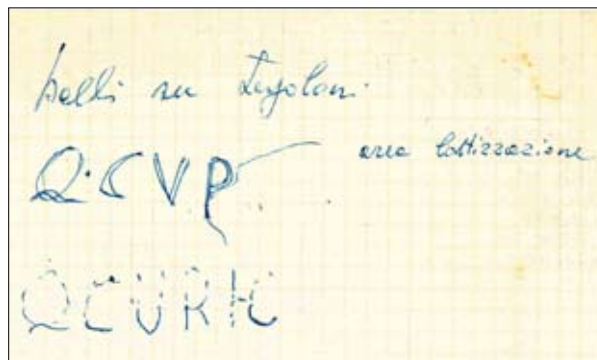 bolli su tegoloni
Q·CVP. area lottizzazione
QCVRIC